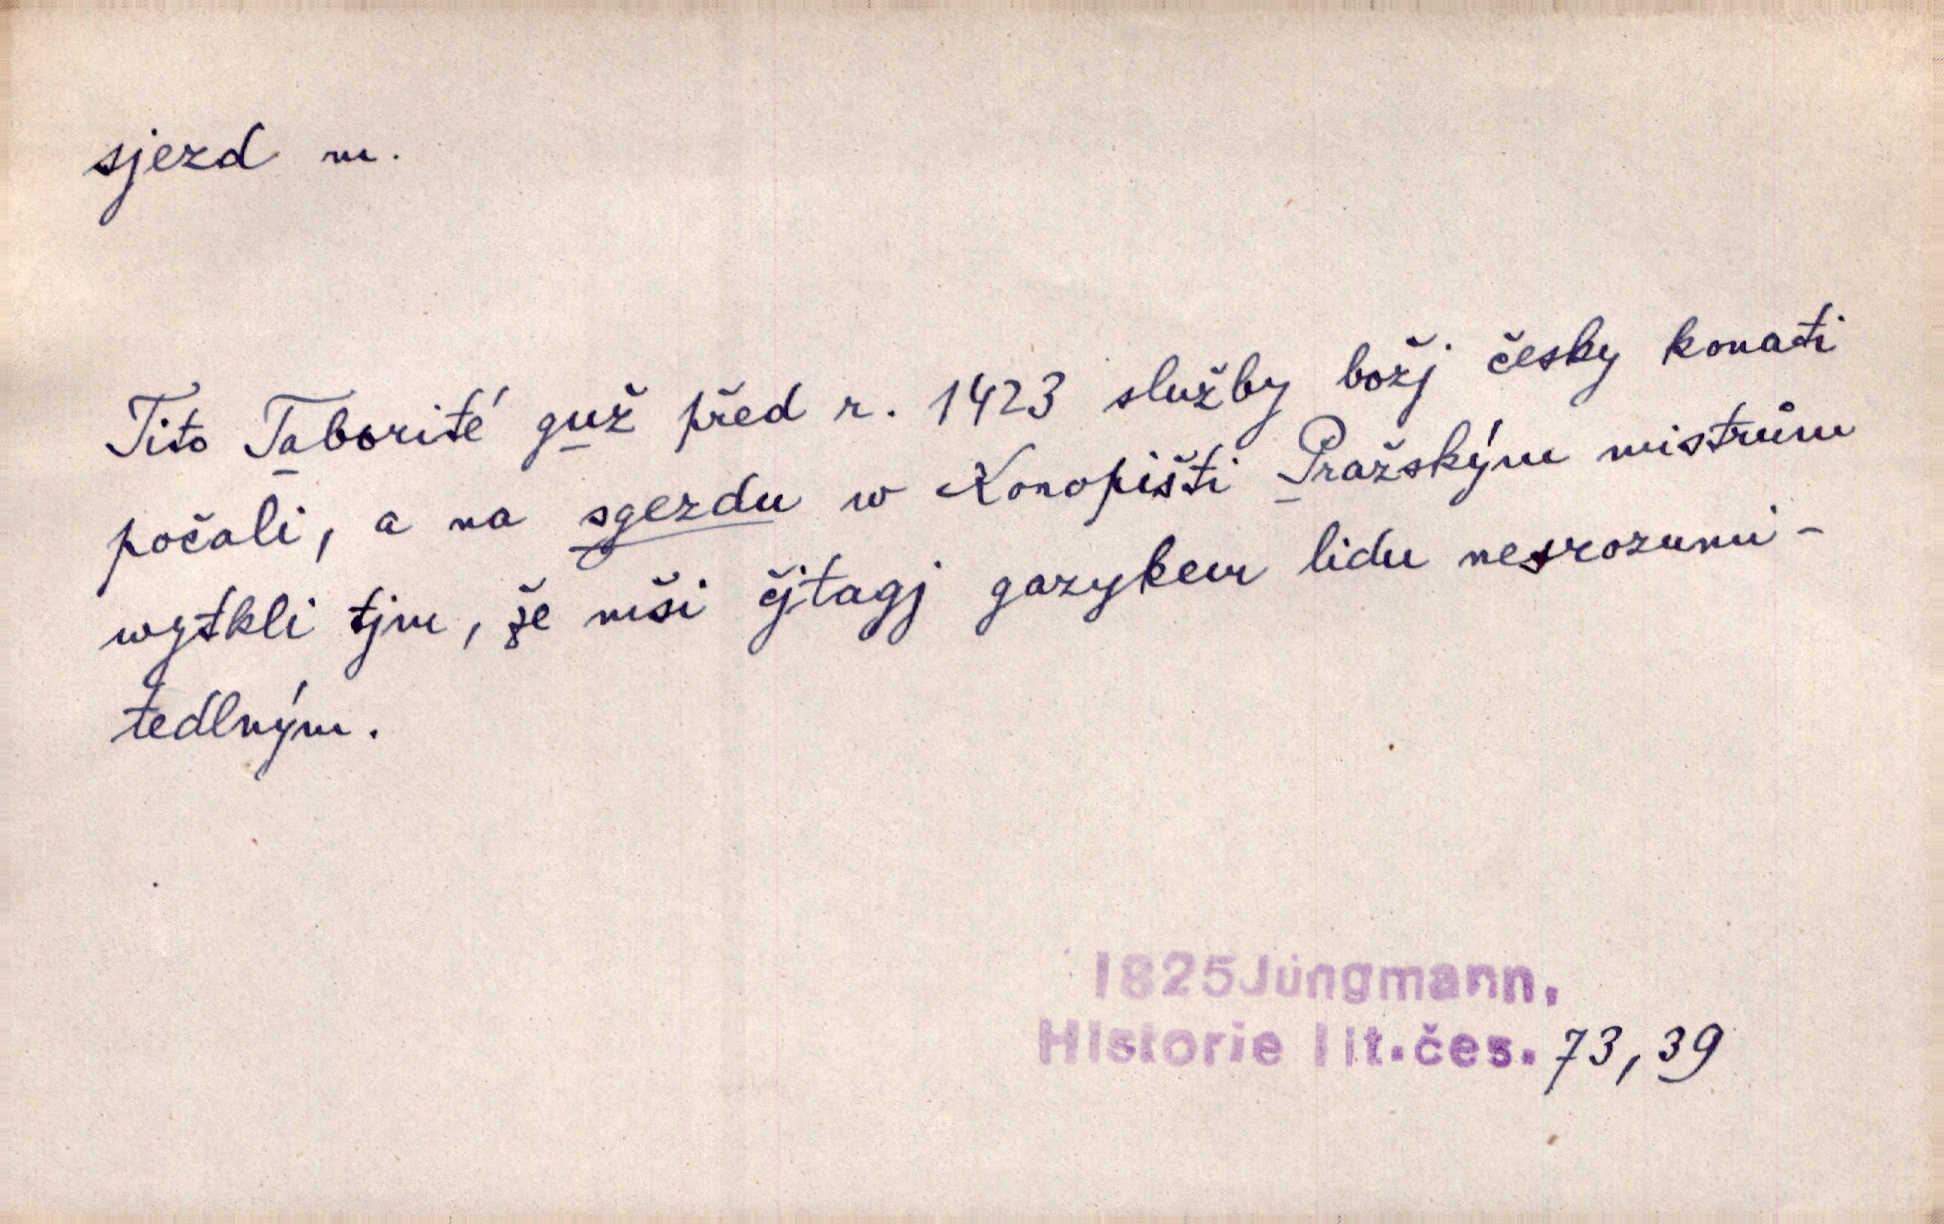 sjezd m.
Tito Taborité guž před r. 1423 služby božj česky konati
počali, a na sgezdu w Konopišti Pražským mistrům
wytkli tjm, že mši čjtagj gazykem lidu nesrozumi-
tedlným.
1825 Jungmann,
Historie lit. čes. 73, 39